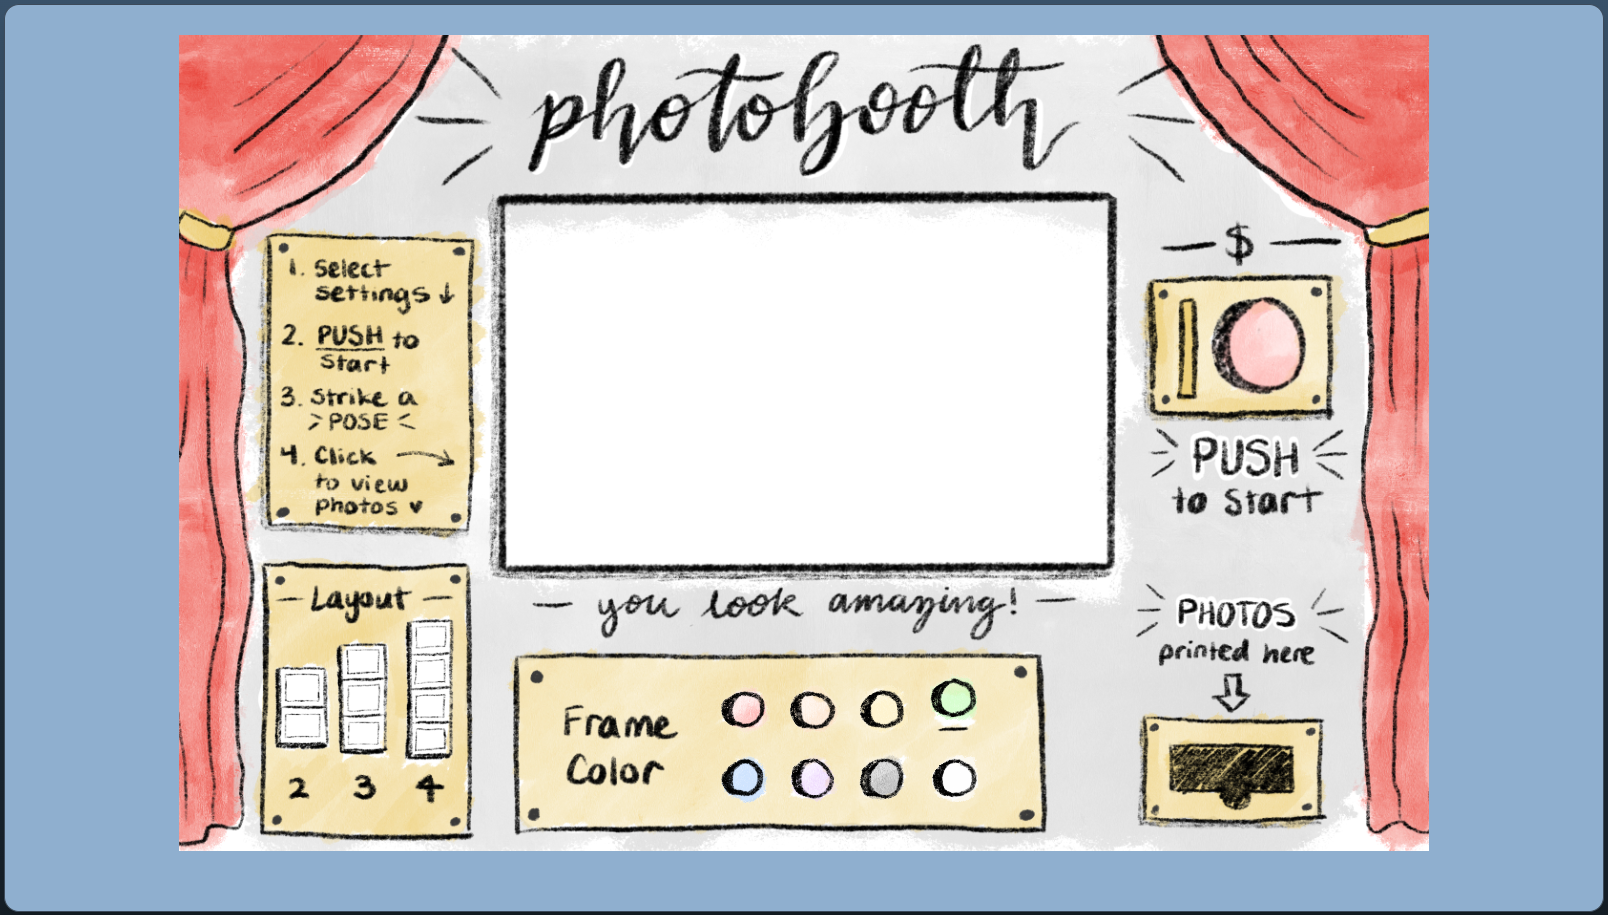 photobooth
1. Select
settings ↓
2. PUSH to
Start
3. Strike a
> POSE <
4. Click →
to view
photos ♥
— Layout —
2 3 4
— you look amazing! —
Frame
Color
— $ —
PUSH
to Start
PHOTOS
printed here